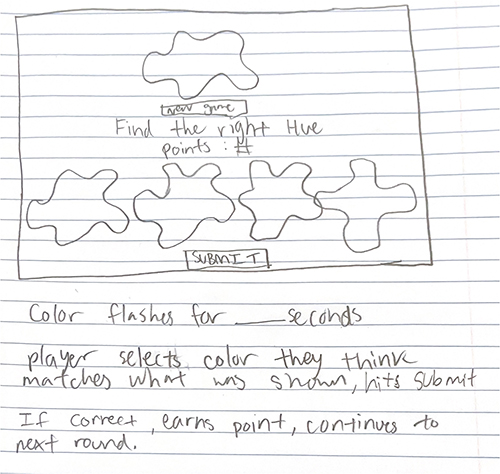 new game
Find the right Hue
points : #
SUBMIT
Color flashes for ____ seconds
player selects color they think
matches what was shown, hits submit
If correct, earns point, continues to
next round.